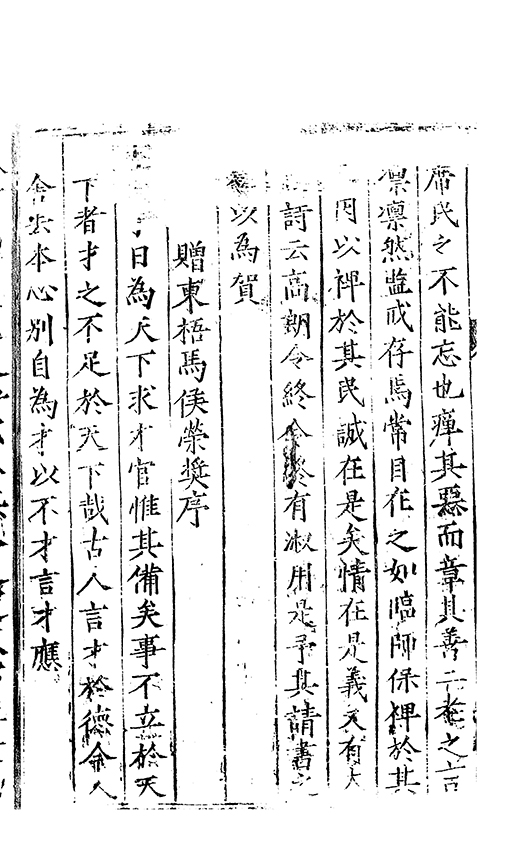 席民之不能忘也癉其惡而章其善二於之言
凜凜然監戒存焉常目在之如臨師保裨於其
以裨於其民誠在是矣情在是義又有大
詩云高朗令終令終有淑用是予其請書之
以為賀
贈東梧馬侯榮奬序
曰為天下求才官惟其備矣事不立於天
下者才之不足於天下哉古人言才於德今人
舍去本心別自為才以不才言才應